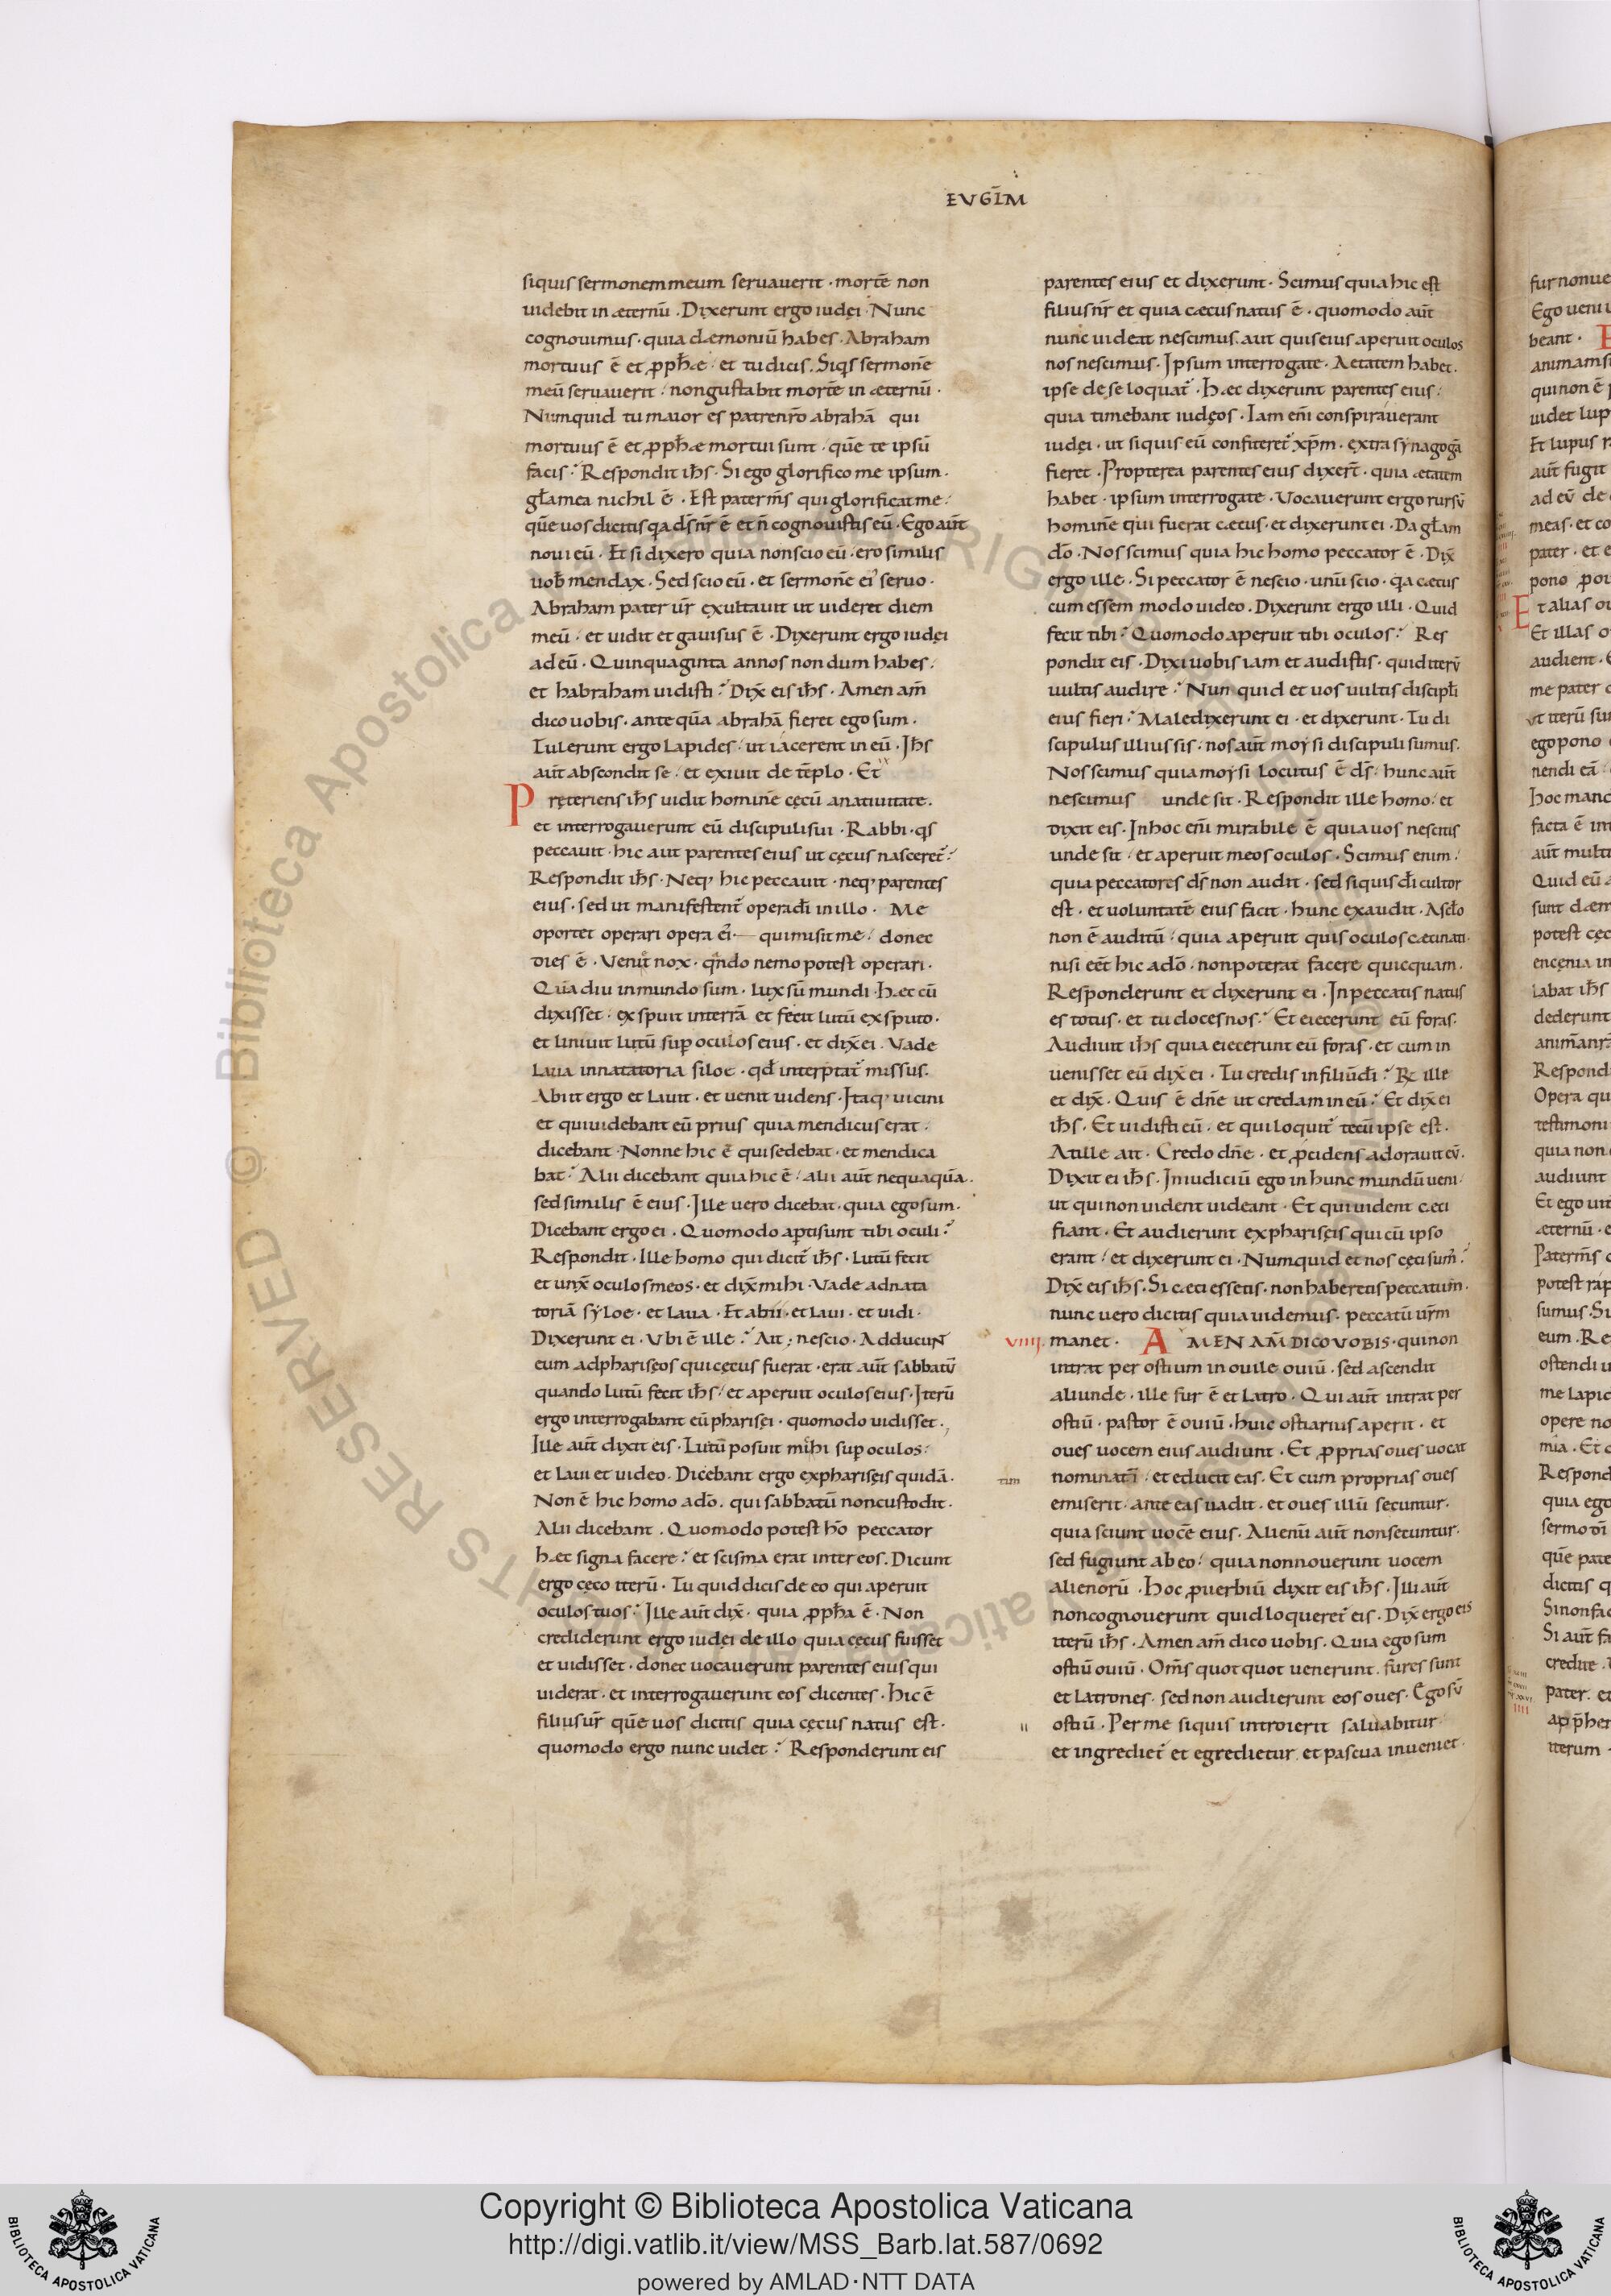 EVGL̄M
siquis sermonem meum seruauerit · mortē non
uidebit in æternū · Dixerunt ergo iudęi · Nunc
cognouimus · quia dæmoniū habes · Abraham
mortuus ē et ꝓpħæ · et tu dicis · Siqͥs sermonē
meū seruauerit / non gustabit mortē in æternū ·
Numquid tu maior es patre nr̄o abrahā qui
mortuus ē et ꝓpħæ mortui sunt / quē te ipsū
facis ? Respondit ihs̄ · Si ego glorifico me ipsum ·
gl̄a mea nichil ē · Est pater ms̄ qui glorificat me /
quē uos dicitis qa ds̄ nr̄ ē et n̄ cognouistis eū · Ego aūt
noui eū · Et si dixero quia non scio eū · ero similis
uob̄ mendax · Sed scio eū · et sermonē ei' seruo ·
Abraham pater ur̄ exultauit ut uideret diem
meū / et uidit et gauisus ē · Dixerunt ergo iudęi
ad eū · Quinquaginta annos non dum habes /
et habraham uidisti ? Dix̄ eis ihs̄ · Amen am̄
dico uobis · ante quā abrahā fieret ego sum ·
Tulerunt ergo lapides / ut iacerent in eū · Ihs̄
aūt abscondit se / et exiuit de tēplo · Et
Pręteriens ihs̄ uidit hominē cęcū a natiuitate ·
et interrogauerunt eū discipuli sui · Rabbi · qͥs
peccauit · hic aut parentes eius ut cęcus nasceret̄ ?
Respondit ihs̄ · Neq; hic peccauit · neq; parentes
eius · sed ut manifestent̄ opera dī in illo · Me
oportet operari opera ei' — qui misit me / donec
dies ē · Venit nox · qn̄do nemo potest operari ·
Quā diu in mundo sum · lux sū mundi · Hæc cū
dixisset / exspuit in terrā et fecit lutū ex sputo ·
et liniuit lutū sup oculos eius · et dix̄ ei · Vade
laua in natatoria siloe · qd̄ interptat̄ missus ·
Abiit ergo et lauit · et uenit uidens · Itaq; uicini
et qui uidebant eū prius quia mendicus erat ·
dicebant · Nonne hic ē qui sedebat · et mendica
bat ? Alii dicebant quia hic ē / alii aūt nequaquā ·
sed similis ē eius · Ille uero dicebat · quia ego sum ·
Dicebant ergo ei · Quomodo apti sunt tibi oculi ?
Respondit · Ille homo qui dicit̄ ihs̄ · lutū fecit
et unx̄ oculos meos · et dix̄ mihi · Vade ad nata
toriā syloe · et laua · Et abii · et laui · et uidi ·
Dixerunt ei · Vbi ē ille ? Ait ; nescio · Adducunt
eum ad phariseos qui cęcus fuerat · erat aūt sabbatū
quando lutū fecit ihs̄ / et aperuit oculos eius · Iterū
ergo interrogabant eū pharisęi · quomodo uidisset ·
Ille aūt dixit eis · Lutū posuit mihi sup oculos /
et laui et uideo · Dicebant ergo ex pharisęis quidā ·
Non ē hic homo a dō · qui sabbatū non custodit ·
Alii dicebant · Quomodo potest hō peccator
hæc signa facere ? et scisma erat inter eos · Dicunt
ergo cęco iterū · Tu quid dicis de eo qui aperuit
oculos tuos ? Ille aūt dix̄ · quia ꝓpħa ē · Non
crediderunt ergo iudęi de illo quia cęcus fuisset
et uidisset · donec uocauerunt parentes eius qui
uiderat · et interrogauerunt eos dicentes · Hic ē
filius ur̄ quē uos dicitis quia cęcus natus est ·
quomodo ergo nunc uidet ? Responderunt eis
parentes eius et dixerunt · Scimus quia hic est
filius nr̄ et quia cæcus natus ē · quomodo aūt
nunc uideat nescimus · aut quis eius aperuit oculos
nos nescimus · Ipsum interrogate · Aetatem habet ·
ipse de se loquat̄ · Hæc dixerunt parentes eius /
quia timebant iudęos · Iam eni conspirauerant
iudęi · ut siquis eū confiteret̄ xp̄m · extra synagogā
fieret · Propterea parentes eius dixer̄t · quia ætatem
habet · ipsum interrogate · Vocauerunt ergo rursū
hominē qui fuerat cæcus · et dixerunt ei · Da gl̄am
dō · Nos scimus quia hic homo peccator ē · Dix̄
ergo ille · Si peccator ē nescio · unū scio · qa cæcus
cum essem modo uideo · Dixerunt ergo illi · Quid
fecit tibi ? Quomodo aperuit tibi oculos ? Res
pondit eis · Dixi uobis iam et audistis · quid iterū
uultis audire ? Nun quid et uos uultis discipl̄i
eius fieri ? Maledixerunt ei · et dixerunt · Tu di
scipulus illius sis · nos aūt moysi discipuli sumus ·
Nos scimus quia moysi locutus ē ds̄ / hunc aūt
nescimus unde sit · Respondit ille homo / et
dixit eis · In hoc eni mirabile ē quia uos nescitis
unde sit / et aperuit meos oculos · Scimus enim /
quia peccatores ds̄ non audit · sed siquis dī cultor
est · et uoluntatē eius facit · hunc exaudit · A sclo
non ē auditū / quia aperuit quis oculos cæci nati ·
nisi eēt hic a dō · non poterat facere quicquam ·
Responderunt et dixerunt ei · In peccatis natus
es totus · et tu doces nos ? Et eiecerunt eū foras ·
Audiuit ihs̄ quia eiecerunt eū foras · et cum in
uenisset eū dix̄ ei · Tu credis in filiū dī ? R̄ ille
et dix̄ · Quis ē dn̄e ut credam in eū ? Et dix̄ ei
ihs̄ · Et uidisti eū · et qui loquit̄ tecū ipse est ·
At ille ait · Credo dn̄e · et pcidens adorauit eū ·
Dixit ei ihs̄ · In iudiciū ego in hunc mundū ueni
ut qui non uident uideant · Et qui uident cæci
fiant · Et audierunt ex pharisęis qui cū ipso
erant / et dixerunt ei · Numquid et nos cęci sum' ?
Dix̄ eis ihs̄ · Si cæci essetis · non haberetis peccatum ·
nunc uero dicitis quia uidemus · peccatū ur̄m
VIIII. manet · AMEN AM̄ DICO VOBIS · qui non
intrat per ostium in ouile ouiū · sed ascendit
aliunde · ille fur ē et latro · Qui aūt intrat per
ostiū · pastor ē ouiū · huic ostiarius aperit · et
oues uocem eius audiunt · Et ꝓprias oues uocat
tim nominatī / et educit eas · Et cum proprias oues
emiserit · ante eas uadit · et oues illū secuntur ·
quia sciunt uocē eius · Alienū aūt non secuntur ·
sed fugiunt ab eo / quia non nouerunt uocem
alienorū · Hoc ꝓuerbiū dixit eis ihs̄ · Illi aūt
non cognouerunt quid loqueret̄ eis · Dix̄ ergo eis
iterū ihs̄ · Amen am̄ dico uobis · Quia ego sum
ostiū ouiū · Om̄s quot quot uenerunt · fures sunt
et latrones · sed non audierunt eos oues · Ego sū
ostiū · Per me siquis introierit saluabitur
et ingrediet̄ et egredietur · et pascua inueniet ·
Copyright © Biblioteca Apostolica Vaticana
http://digi.vatlib.it/view/MSS_Barb.lat.587/0692
powered by AMLAD·NTT DATA